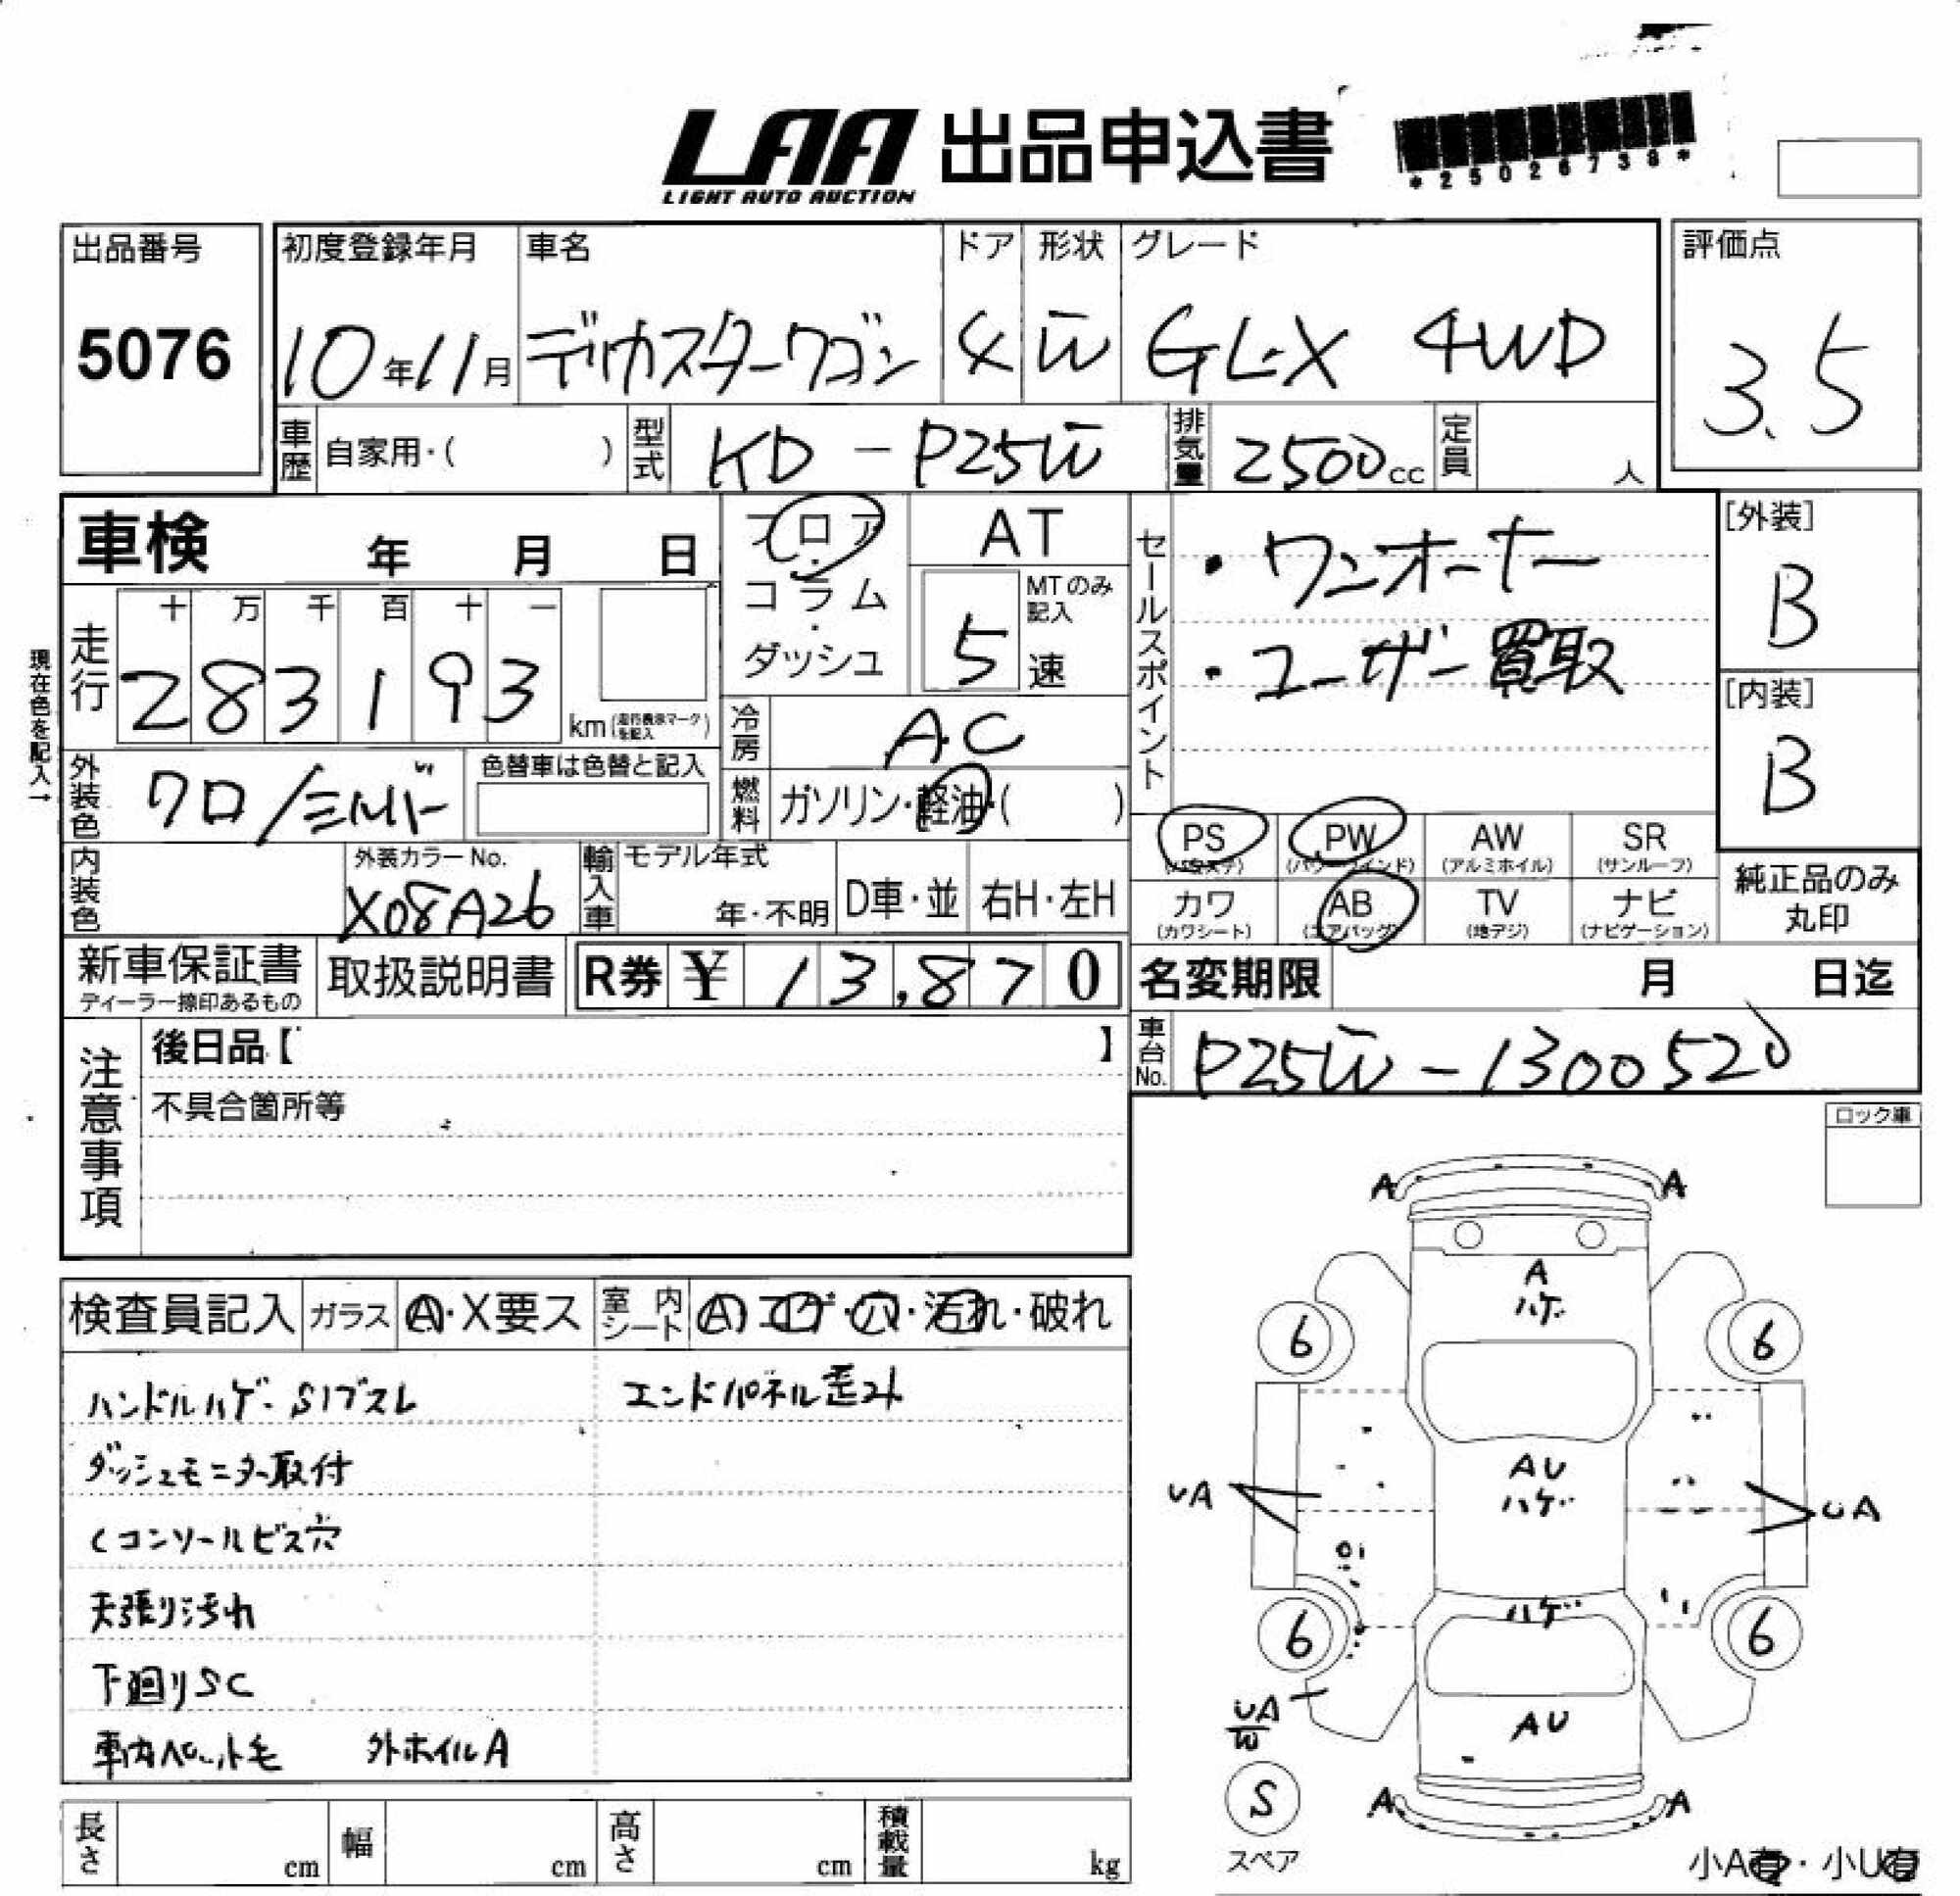 LAA 出品申込書
LIGHT AUTO AUCTION
*25026739*
出品番号
5076
初度登録年月
10年11月
車名
デリカスターワゴン
ドア
4
形状
W
グレード
GLX 4WD
評価点
3.5
車歴 自家用・( )
型式 KD-P25W
排気量 2500cc
定員 人
車検 年 月 日
フロア・コラム・ダッシュ
AT
MTのみ記入
5速
セールスポイント
・ワンオーナー
・ユーザー買取
[外装]
B
[内装]
B
現在色を記入→
走行
十 万 千 百 十 一
2 8 3 1 9 3
km(走行表示マークを記入)
冷房 AC
外装色 クロ/シルバー
色替車は色替と記入
燃料 ガソリン・軽油・( )
PS (パワステ)
PW (パワーウインド)
AW (アルミホイル)
SR (サンルーフ)
カワ (カワシート)
AB (エアバッグ)
TV (地デジ)
ナビ (ナビゲーション)
純正品のみ丸印
内装色
外装カラーNo.
X08A26
輸入車
モデル年式
年・不明
D車・並
右H・左H
新車保証書
ディーラー捺印あるもの
取扱説明書
R券 ¥ 13,870
名変期限 月 日迄
注意事項
後日品【 】
不具合箇所等
車台No. P25W-1300520
ロック車
検査員記入
ガラス A・X要ス
室内シート A・コゲ・穴・汚れ・破れ
ハンドルハゲ・Sリブスレ
エンドパネル歪み
ダッシュモニター取付
Cコンソールビス穴
天張り汚れ
下廻りSC
車内ペット毛 外ホイルA
A A
A
ハゲ
6 6
AU
ハゲ
UA UA
ハゲ
6 6
UA
W
AU
S
スペア
A A
小A有・小U有
長さ cm
幅 cm
高さ cm
積載量 kg